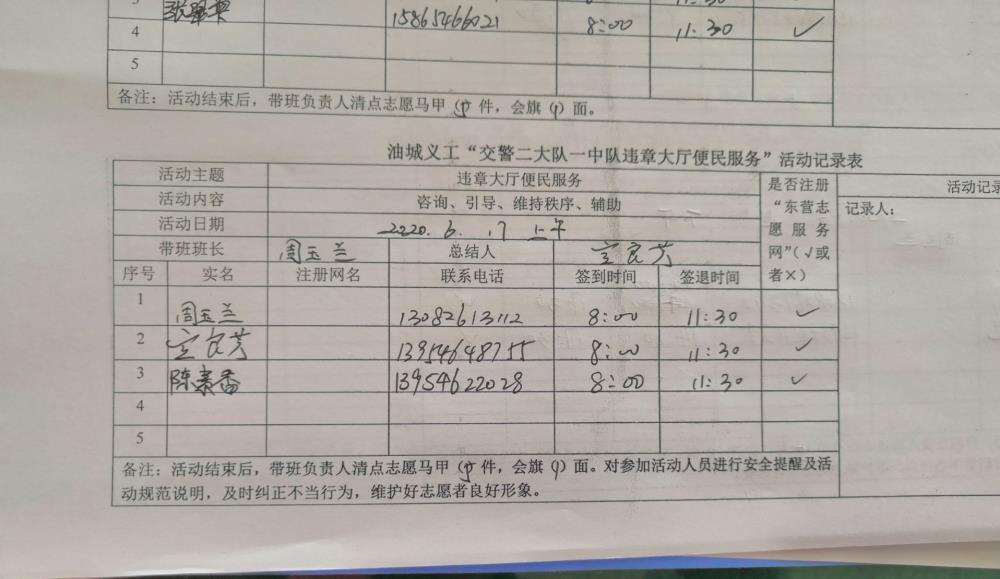 15865466021 8:00 11:30 ✓
4
5
备注：活动结束后，带班负责人清点志愿马甲（5）件，会旗（1）面。
油城义工“交警二大队一中队违章大厅便民服务”活动记录表
活动主题 违章大厅便民服务 是否注册“东营志愿服务网”（√或者×） 活动记录
活动内容 咨询、引导、维持秩序、辅助 记录人：
活动日期 2220.6.17 上午
带班班长 周玉兰 总结人 宣良芳
序号 实名 注册网名 联系电话 签到时间 签退时间
1 周玉兰 13082613112 8:00 11:30 ✓
2 宣良芳 13954648755 8:00 11:30 ✓
3 陈素香 13954622028 8:00 11:30 ✓
4
5
备注：活动结束后，带班负责人清点志愿马甲（5）件，会旗（1）面。对参加活动人员进行安全提醒及活
动规范说明，及时纠正不当行为，维护好志愿者良好形象。